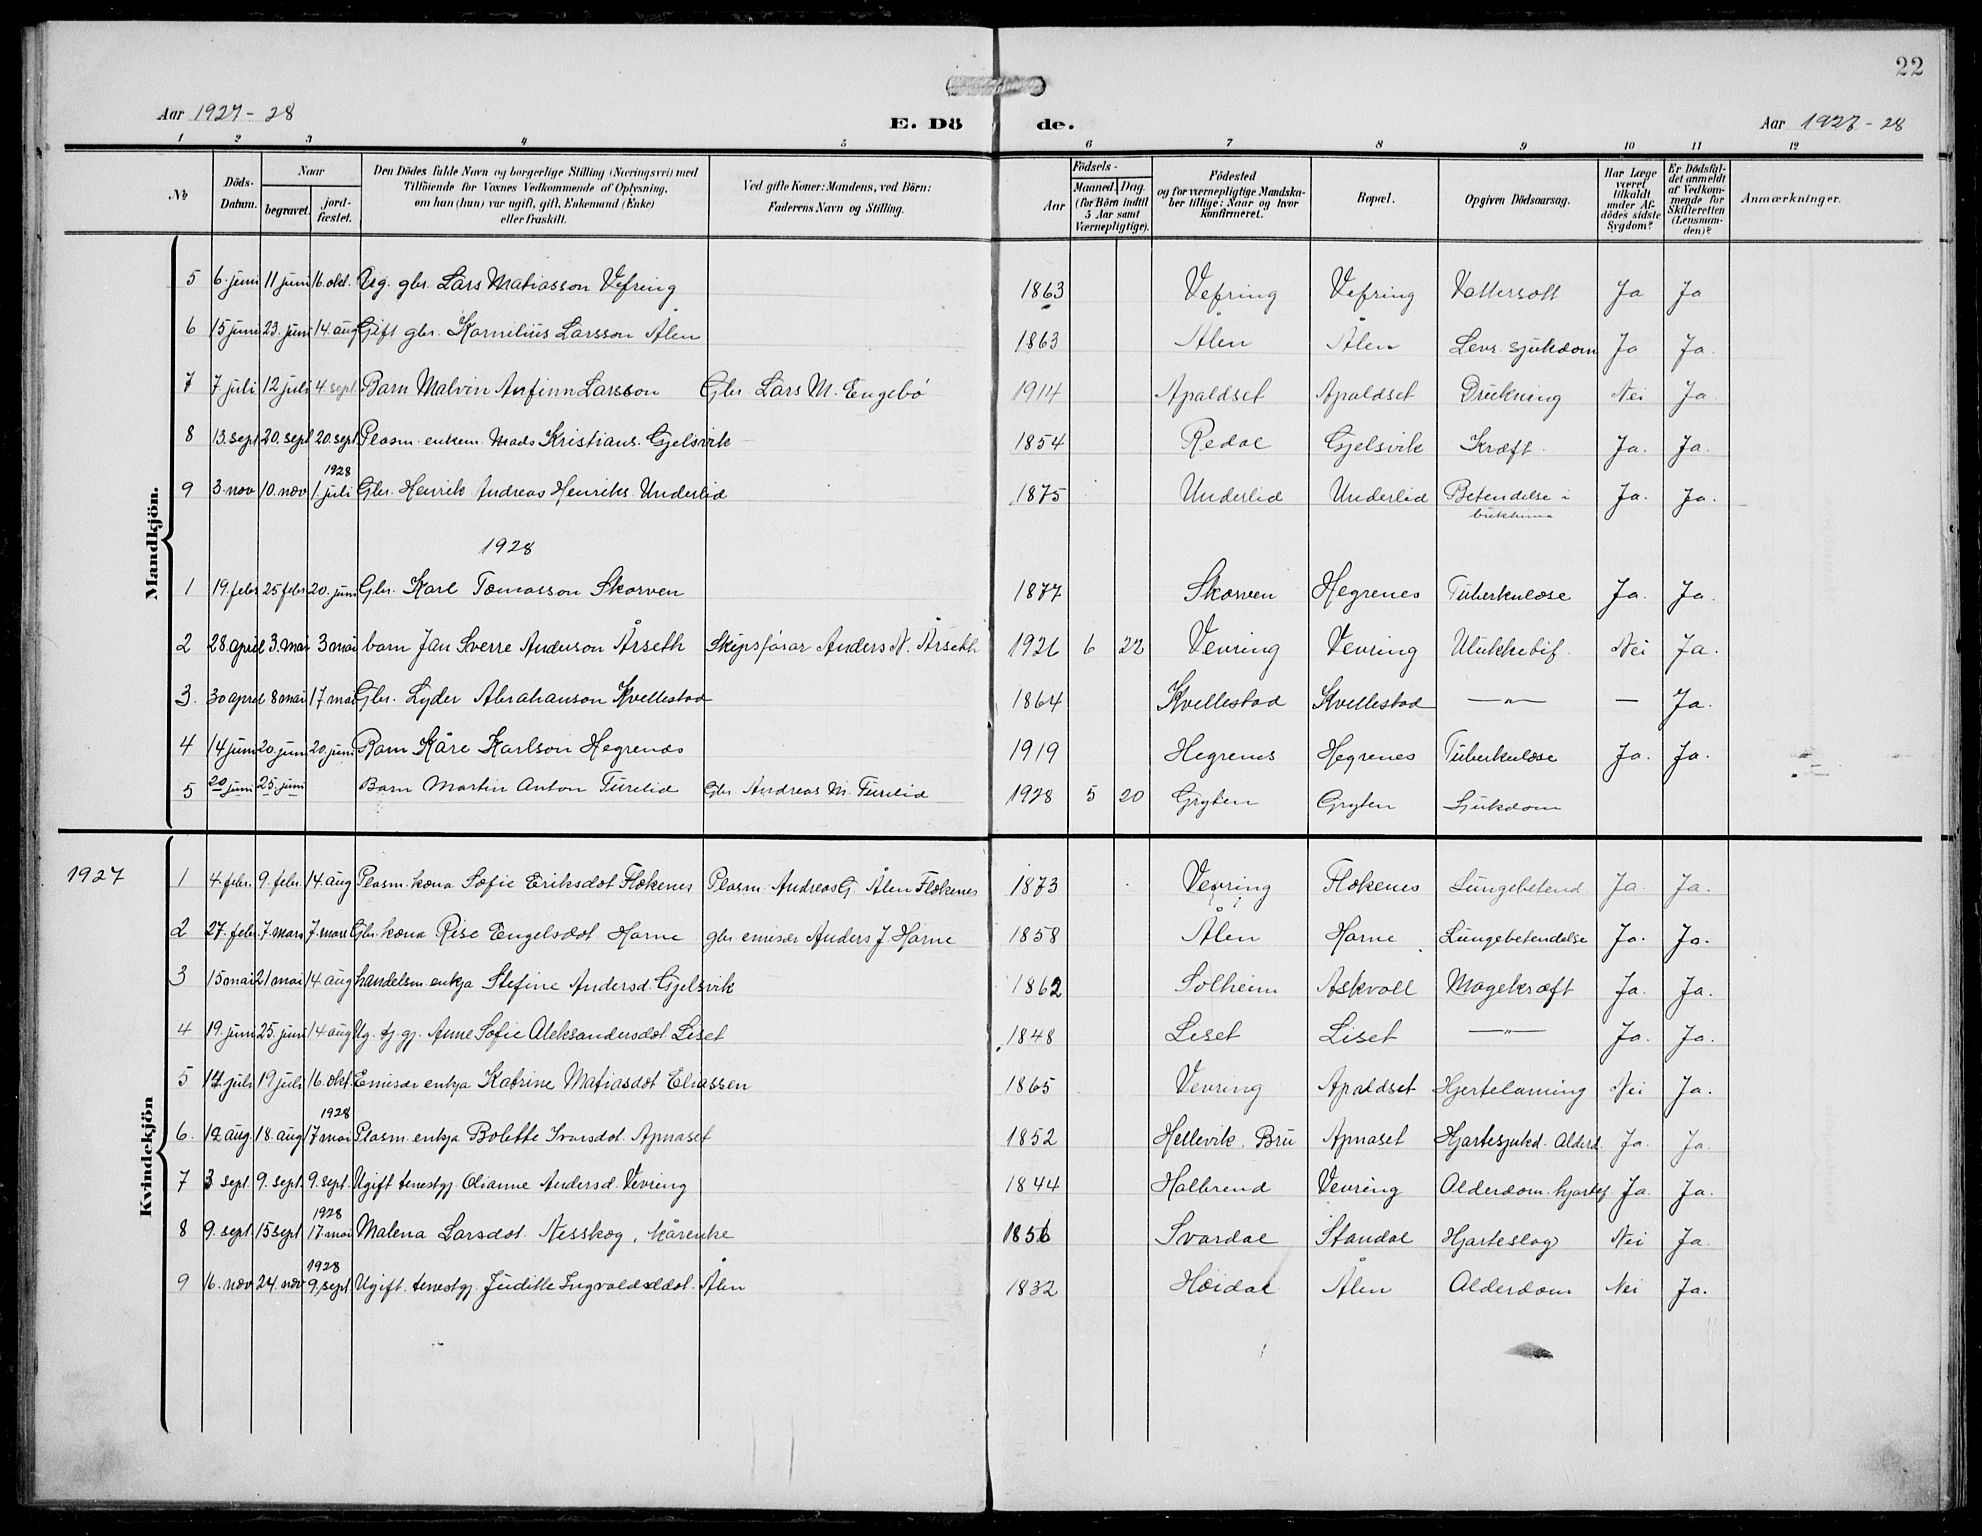 22
Aar 1927-28
E. Dö de.
Aar 1927-28
1 2 3 4 5 6 7 8 9 10 11 12
№ Döds-Datum. Naar begravet. jord-fæstet. Den Dödes fulde Navn og borgerlige Stilling (Næringsvei) med Tilföiende for Voxnes Vedkommende af Oplysning, om han (hun) var ugift, gift, Enkemand (Enke) eller fraskilt. Ved gifte Koner: Mandens, ved Börn: Faderens Navn og Stilling. Födsels- Aar Maaned. Dag. (for Börn indtil 5 Aar samt Værnepligtige). Födested og for værnepligtige Mandskaber tillige: Naar og hvor konfirmeret. Bopæl. Opgiven Dödsaarsag. Har Læge været tilkaldt under Afdödes sidste Sygdom? Er Dödsfaldet anmeldt af Vedkommende for Skifteretten (Lensmanden)? Anmærkninger.
Mandkjön.
5 6. juni 11 juni 16. okt. Ug. gbr. Lars Matiasson Vefring 1863 Vefring Vefring Vattersott Ja Ja
6 15 juni 23. juni 14. aug Gift gbr. Kornelius Larsson Ålen 1863 Ålen Ålen Levr. sjukdom Ja Ja.
7 7. juli 12 juli 4. sept Barn Malvin Anfinn Larsson Gbr. Lars M. Engebø 1914 Apaldset Apaldset Drukning Nei Ja
8 13. sept 20. sept 20. sept Plasm. enkem. Mads Kristians. Gjelsvik 1854 Redal Gjelsvik Kræft. Ja. Ja.
9 3. nov 10. nov 1928 1. juli Gbr. Henrik Andreas Henriks. Underlid 1875 Underlid Underlid Betendelse i bukhinna Ja. Ja.
1928
1 19. febr 25 febr 20. juni Gbr. Karl Tomasson Skorven 1877 Skorven Hegrenes Tuberkulose Ja. Ja.
2 28. april 3. mai 3 mai barn Jan Sverre Anderson Årseth Skipsførar Anders N. Årseth 1926 6 22 Vevring Vevring Ulukketif. Nei Ja.
3. 30 april 8 mai 17. mai Gbr. Lyder Abrahamson Kvellestad 1864 Kvellestad Kvellestad —"— — Ja.
4 14 juni 20. juni 20. juni Barn Kåre Karlson Hegrenes 1919 Hegrenes Hegrenes Tuberkulose Ja. Ja.
5 20 juni 25. juni Barn Martin Anton Turelid Gbr Andreas M. Turelid 1928 5 20 Gryten Gryten Sjukdom
1927
Kvindekjön
1 4. febr. 9. febr. 14. aug Plasm. kona Sofie Eriksdot Flokenes Plasm. Andreas G. Ålen Flokenes 1873 Vevring Flokenes Lungebetend. Ja. Ja.
2 27. febr. 7. mars 7. mars Gbr. kona Rise Engelsdot Horne gbr. emisær Anders J Horne 1858 Ålen Horne Lungebetendelse Ja. Ja.
3 15 mai 21 mai 14. aug handelsm. enkja Stefine Andersd. Gjelsvik 1862 Solheim Askvoll Magekræft Ja. Ja.
4 19. juni 25. juni 14 aug Ug. tj. gj. Anne Sofie Aleksandersdot. Liset 1848 Liset Liset —"— Ja. Ja.
5 14 juli 19 juli 16. okt. Emisær enkja Katrine Matiasdot Eliassen 1865 Vevring Apaldset Hjertelaming Nei Ja.
6. 12 aug. 18. aug 1928 17 mai Plasm. enkja Bolette Ivarsdot. Apnaset 1852 Hellevik, Bru Apnaset Hjartesjukd. Alderd. Ja. Ja.
7 3 sept. 9. sept. 9. sept. Ugift tenestgj. Olianne Andersd. Vevring 1844 Halbrend Vevring Alderdom. hjartef. Ja. Ja.
8 9. sept 15 sept 1928 17. mai Malena Larsdot. Nesskog, kårenke 1856 Svardal Standal Hjarteslag Nei Ja.
9 16. nov 24. nov 1928 9. sept Ugift. tenestgj. Juditte Ingvaldsdot. Ålen 1832 Hoidal Ålen Alderdom Nei Ja.